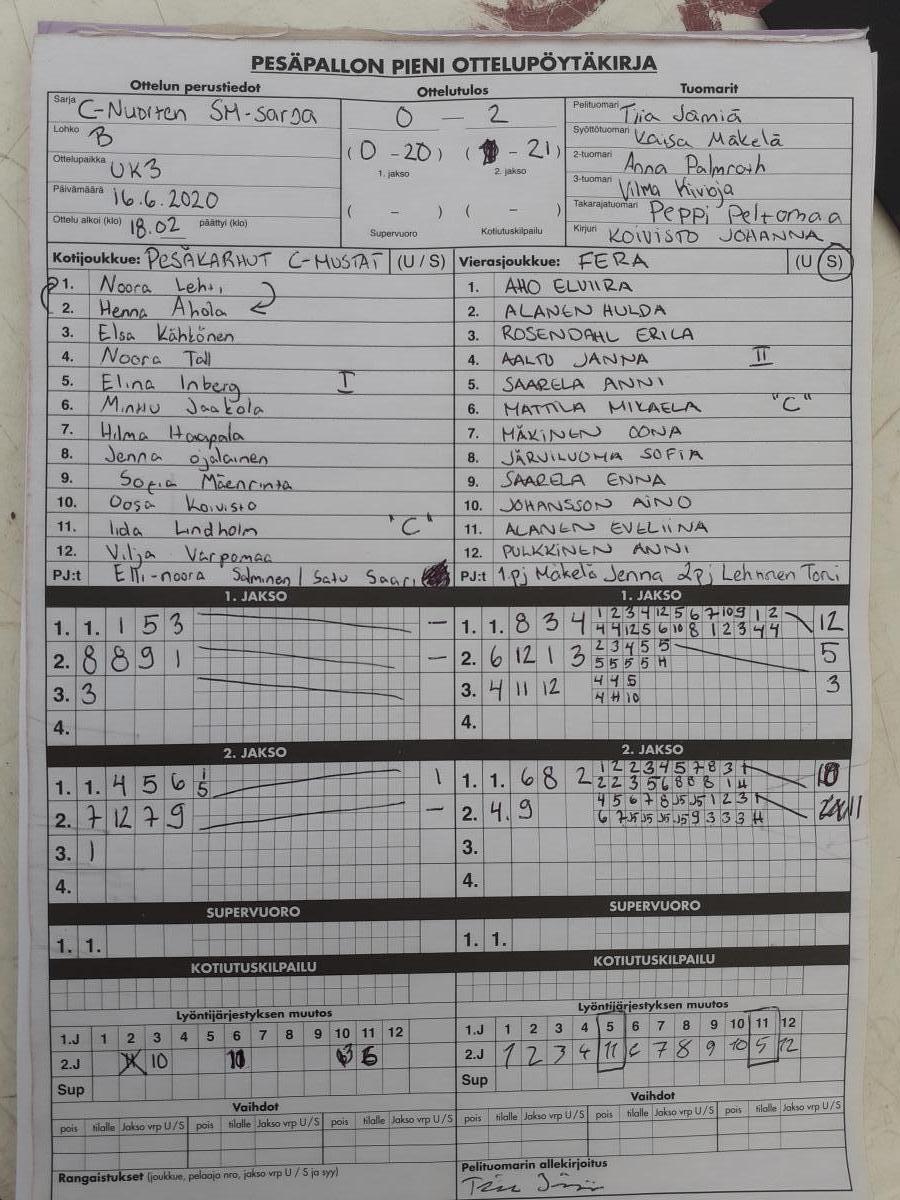 PESÄPALLON PIENI OTTELUPÖYTÄKIRJA
Ottelun perustiedot
Sarja C-Nuorten SM-sarja
Lohko B
Ottelupaikka UK3
Päivämäärä 16.6.2020
Ottelu alkoi (klo) 18.02 päättyi (klo)
Ottelutulos
0 - 2
(0 - 20) ( - 21)
1. jakso 2. jakso
( - ) ( - )
Supervuoro Kotiutuskilpailu
Tuomarit
Pelituomari Tiia Jämiä
Syöttötuomari Kaisa Mäkelä
2-tuomari Anna Palmroth
3-tuomari Vilma Kivioja
Takarajatuomari Peppi Peltomaa
Kirjuri KOIVISTO JOHANNA
Kotijoukkue: PESÄKARHUT C-MUSTAT (U / S)
1. Noora Lehti
2. Henna Ahola
3. Elsa Kähtönen
4. Noora Tall
5. Elina Inberg I
6. Minttu Jaakola
7. Hilma Haapala
8. Jenna Ojalainen
9. Sofia Mäenrinta
10. Oosa Koivisto
11. Iida Lindholm "C"
12. Vilja Varpomaa
PJ:t Elli-noora Salminen / Satu Saari
Vierasjoukkue: FERA (U / S)
1. AHO ELVIIRA
2. ALANEN HULDA
3. ROSENDAHL ERIKA
4. AALTO JANNA II
5. SAARELA ANNI
6. MATTILA MIKAELA "C"
7. MÄKINEN OONA
8. JÄRVILUOMA SOFIA
9. SAARELA ENNA
10. JOHANSSON AINO
11. ALANEN EVELIINA
12. PULKKINEN ANNI
PJ:t 1.pj Mäkelä Jenna 2pj Lehtinen Toni
1. JAKSO
1. 1. 1 5 3 -
2. 8 8 9 1 -
3. 3
4.
1. JAKSO
1. 1. 8 3 4 1 2 3 4 12 5 6 7 10 9 1 2 12
4 4 12 5 6 10 8 1 2 3 4 4
2. 6 12 1 3 2 3 4 5 5 5
5 5 5 5 H
3. 4 11 12 4 4 5 3
4 H 10
4.
2. JAKSO
1. 1. 4 5 6 1 1
5
2. 7 12 7 9 -
3. 1
4.
2. JAKSO
1. 1. 6 8 2 1 2 2 3 4 5 7 8 3 1 10
2 2 3 5 6 8 8 8 1 H
2. 4. 9 4 5 6 7 8 J5 J5 1 2 3 1 11
6 7 J5 J5 J5 J5 9 3 3 3 H
3.
4.
SUPERVUORO
1. 1.
SUPERVUORO
1. 1.
KOTIUTUSKILPAILU
KOTIUTUSKILPAILU
Lyöntijärjestyksen muutos
1.J 1 2 3 4 5 6 7 8 9 10 11 12
2.J 10 11 6
Sup
Lyöntijärjestyksen muutos
1.J 1 2 3 4 5 6 7 8 9 10 11 12
2.J 1 2 3 4 11 6 7 8 9 10 5 12
Sup
Vaihdot
pois tilalle Jakso vrp U / S pois tilalle Jakso vrp U / S pois tilalle Jakso vrp U / S
Vaihdot
pois tilalle Jakso vrp U / S pois tilalle Jakso vrp U / S pois tilalle Jakso vrp U / S
Rangaistukset (joukkue, pelaaja nro, jakso vrp U / S ja syy)
Pelituomarin allekirjoitus